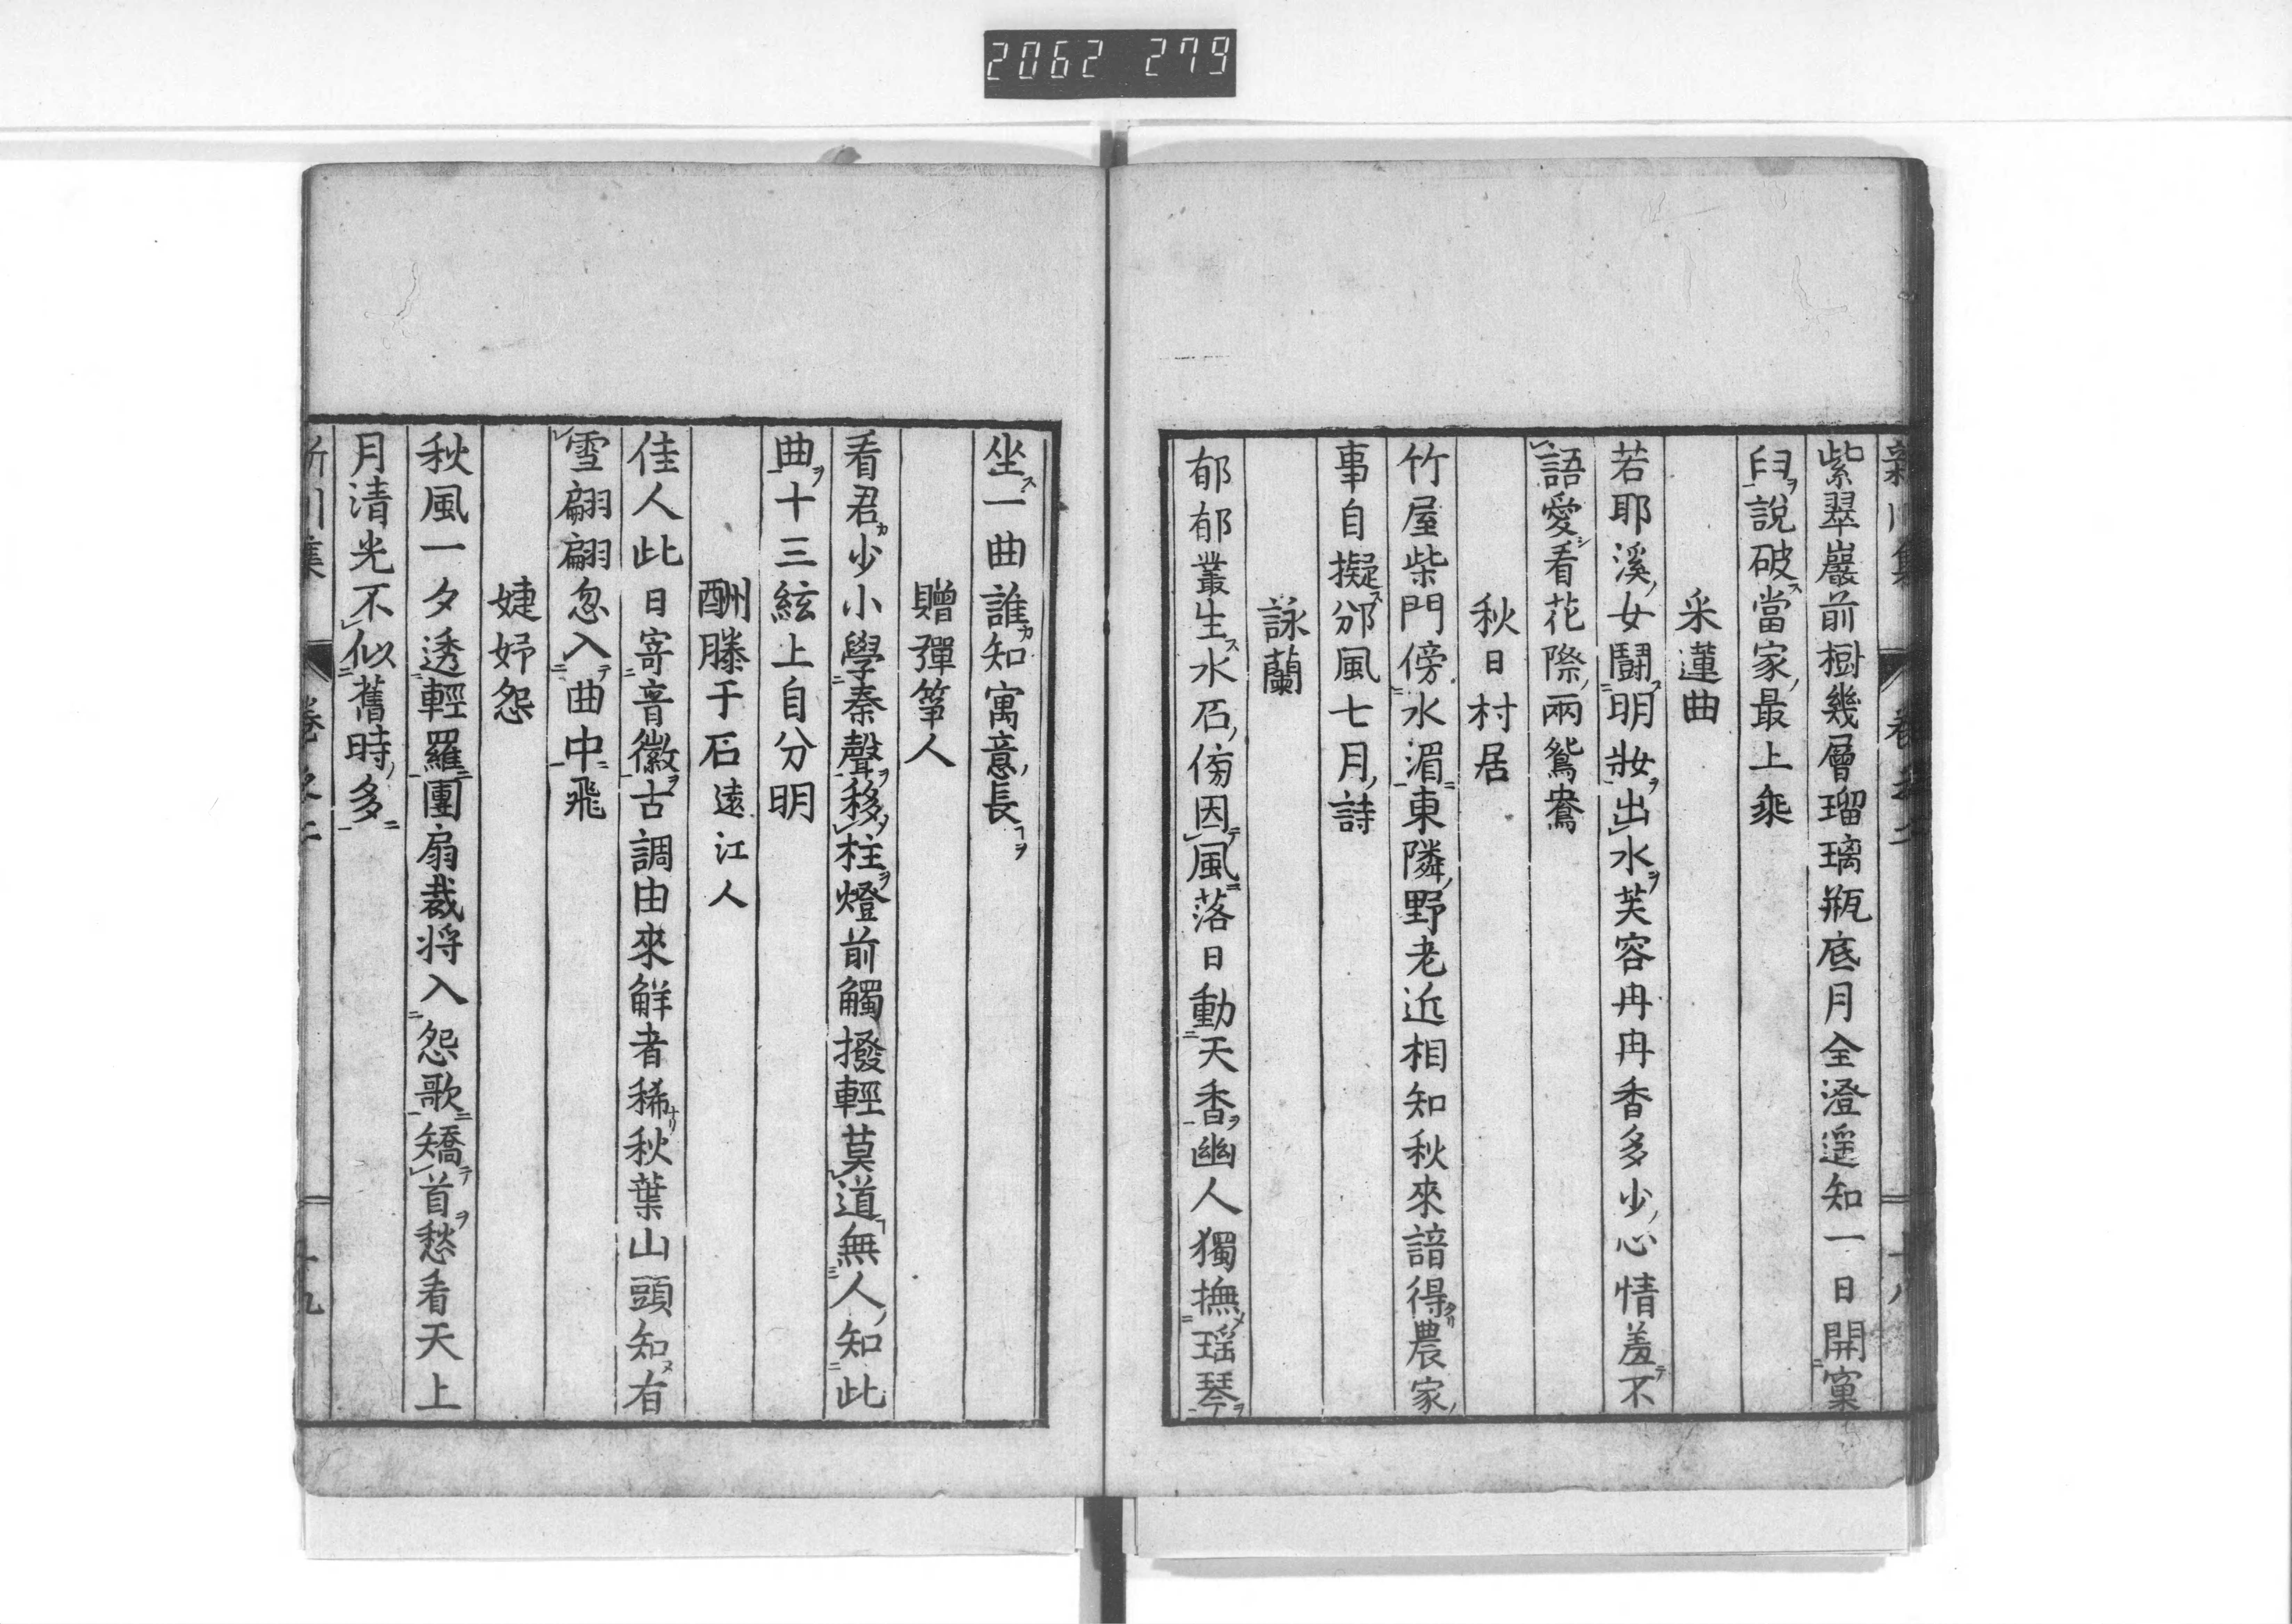 2062 279
紫翠巖前樹幾層瑠璃瓶底月全澄遥知一日開窠
臼說破當家最上乘
采蓮曲
若耶溪女鬪明妝出水芙容冉冉香多少心情羞不
語愛看花際兩鴛鴦
秋日村居
竹屋柴門傍水湄東隣野老近相知秋來諳得農家
事自擬邠風七月詩
詠蘭
郁郁叢生水石傍因風落日動天香幽人獨撫瑶琴
坐一曲誰知寓意長
贈彈筝人
看君少小學秦聲移柱燈前觸撥輕莫道無人知此
曲十三絃上自分明
酬滕于石遠江人
佳人此日寄音徽古調由來觧者稀秋葉山頭知有
雪翩翩忽入曲中飛
婕妤怨
秋風一夕透輕羅團扇裁将入怨歌矯首愁看天上
月清光不似舊時多